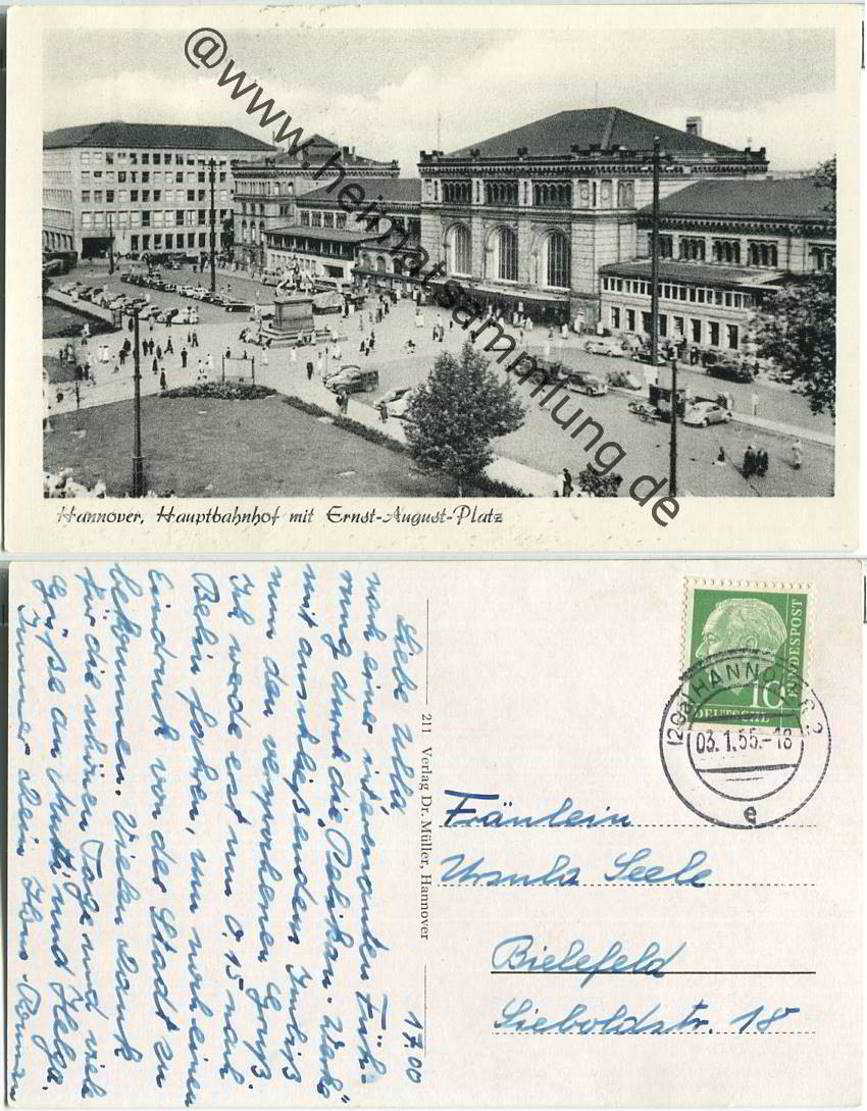 @www.heimatsammlung.de
Hannover, Hauptbahnhof mit Ernst-August-Platz
17 00
Liebe Ulla
nach einer interessanten Füh-
rung durch die „Pelikan-Werke“
mit anschließendem Imbiß
nun den versprochenen Gruß.
Ich werde erst um 0.15 nach
Berlin fahren, um noch einen
Eindruck von der Stadt zu
bekommen. Vielen Dank
für die schönen Tage und viele
Grüße an Mutti und Helga.
Immer Dein Hans
211 Verlag Dr. Müller, Hannover
DEUTSCHE
BUNDESPOST
10
(20a) HANNOVER 2
03.1.55.-18
e
Fräulein
Ursula Seele
Bielefeld
Sieboldstr. 18